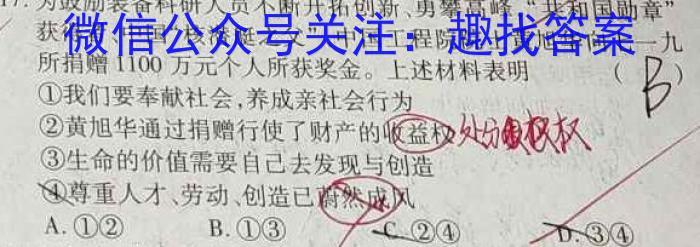 17.为鼓励装备科研人员不断开拓创新、勇攀高峰,“共和国勋章”
微信公众号关注:趣找答案
所捐赠1100万元个人所获奖金。上述材料表明 ( B )
①我们要奉献社会,养成亲社会行为
②黄旭华通过捐赠行使了财产的收益权 处分权
③生命的价值需要自己去发现与创造
④尊重人才、劳动、创造已蔚然成风
A.①② B.①③ C.②④ D.③④